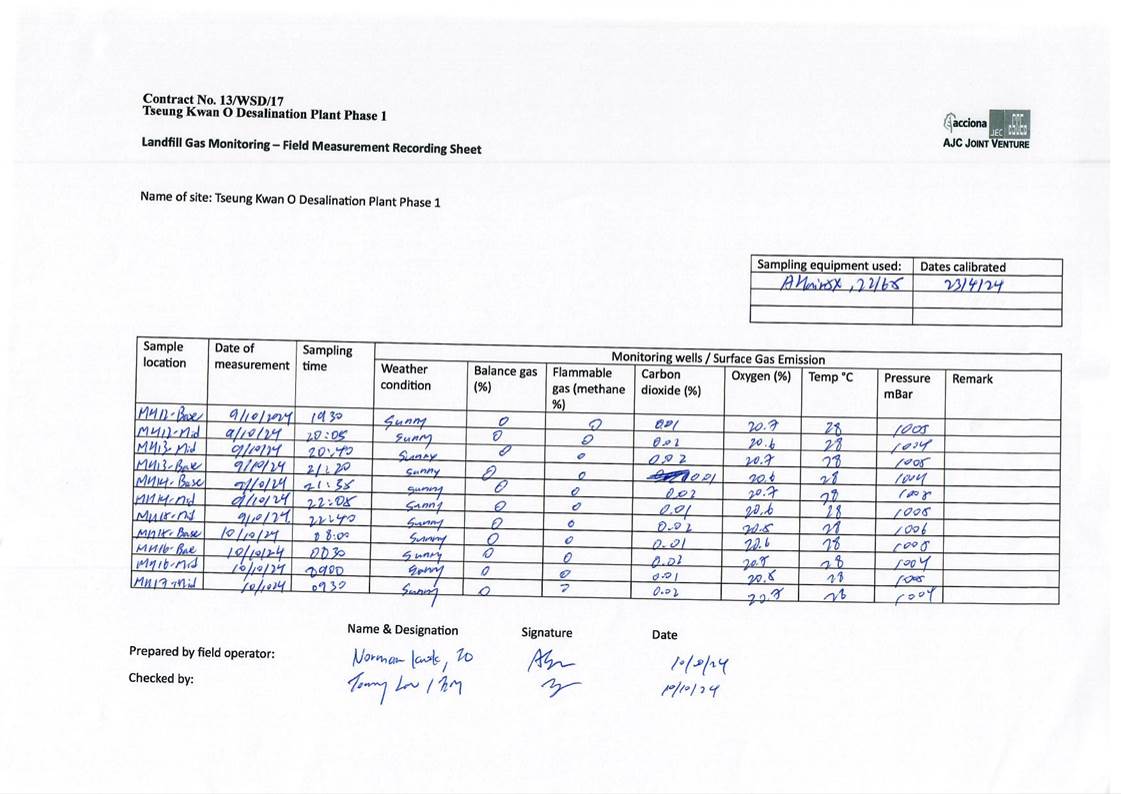 Contract No. 13/WSD/17
Tseung Kwan O Desalination Plant Phase 1
Landfill Gas Monitoring – Field Measurement Recording Sheet
acciona JEC
AJC JOINT VENTURE
Name of site: Tseung Kwan O Desalination Plant Phase 1
Sampling equipment used: Dates calibrated
23/4/24
Sample location Date of measurement Sampling time Monitoring wells / Surface Gas Emission
Weather condition Balance gas (%) Flammable gas (methane %) Carbon dioxide (%) Oxygen (%) Temp °C Pressure mBar Remark
MH12-Base 9/10/2024 1930 Sunny 0 0 0.01 20.7 28 1005
MH12-Mid 9/10/24 20:05 Sunny 0 0 0.02 20.6 28 1004
MH13-Mid 9/10/24 20:40 Sunny 0 0 0.02 20.7 28 1005
MH13-Base 9/10/24 21:20 Sunny 0 0 0.01 20.6 28 1004
MH14-Base 9/10/24 21:35 Sunny 0 0 0.02 20.7 28 1005
MH14-Mid 9/10/24 22:05 Sunny 0 0 0.01 20.6 28 1005
9/10/24 22:40 Sunny 0 0 0.02 28 1006
10/10/24 Sunny 0 0 0.01 20.6 28 1005
10/10/24 Sunny 0 0 0.02 28 1004
MH16-Mid 10/10/24 0900 Sunny 0 0 0.01 28 1005
MH17-Mid 10/10/24 0930 Sunny 0 0.02 28 1004
Name & Designation Signature Date
Prepared by field operator: Norman 10/10/24
Checked by: 10/10/24